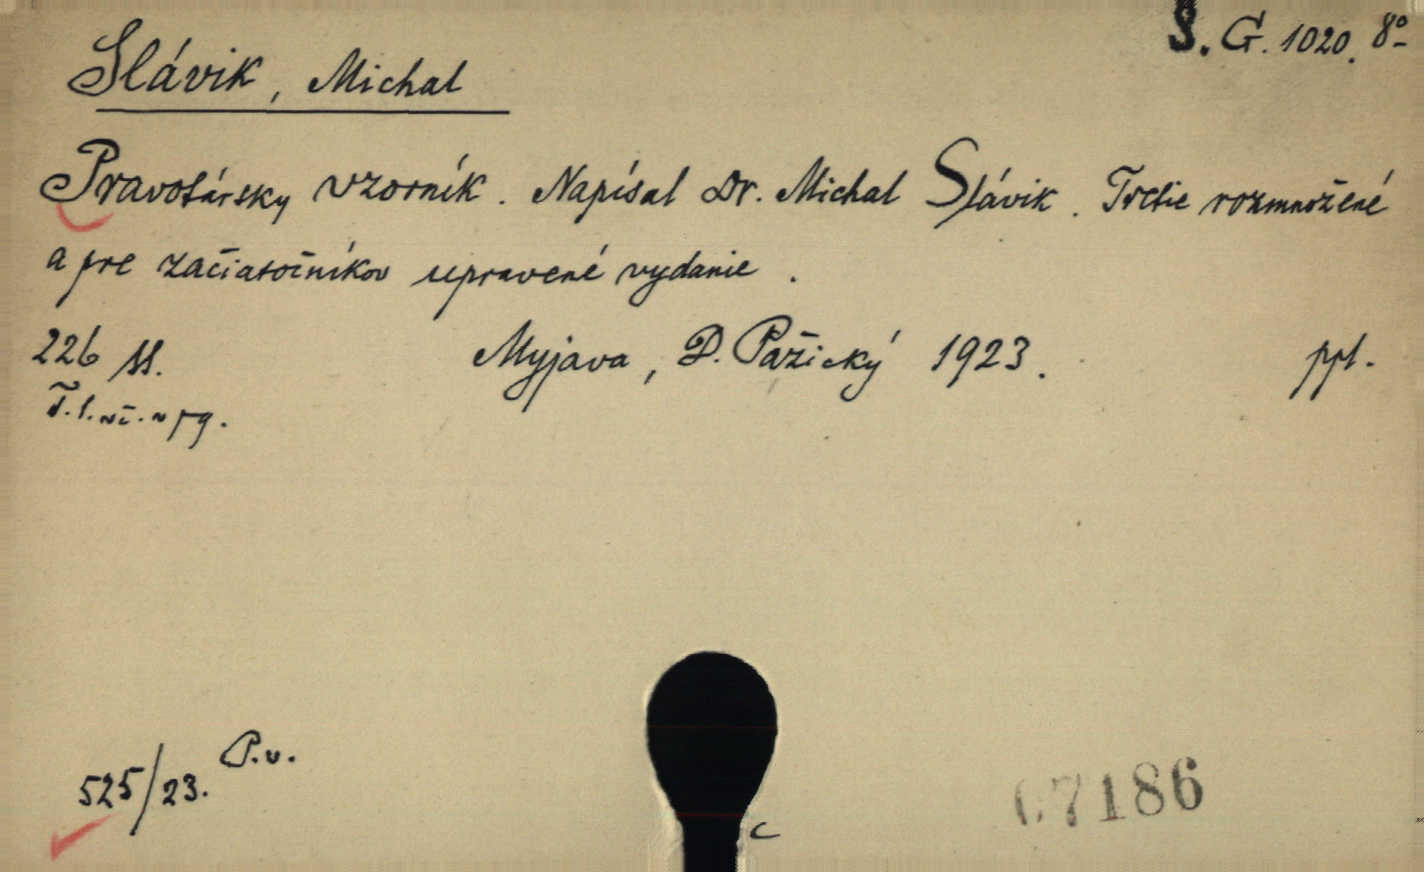 S. G. 1020. 8º
Slávik, Michal
Pravotársky vzorník. Napísal Dr. Michal Slávik. Tretie rozmnožené
a pre začiatočníkov upravené vydanie.
226 ss. Myjava, D. Pažický 1923. ppl.
T. l.
525/23. P.v.
7186